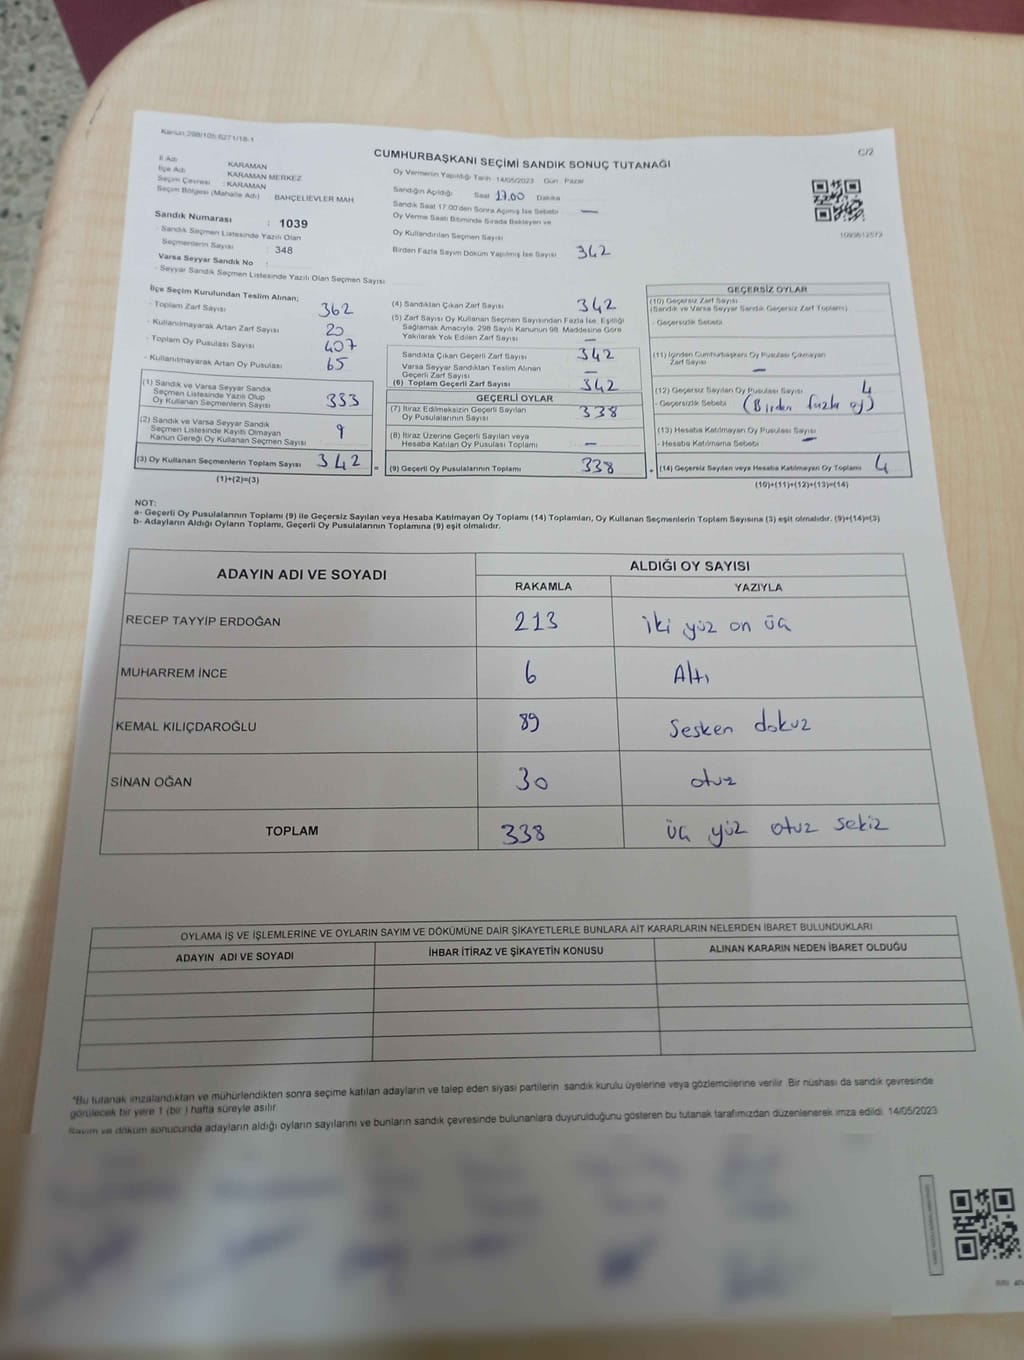 Kanun:298/105;6271/18-1
C/2
CUMHURBAŞKANI SEÇİMİ SANDIK SONUÇ TUTANAĞI
İl Adı : KARAMAN
İlçe Adı : KARAMAN MERKEZ
Seçim Çevresi : KARAMAN
Seçim Bölgesi (Mahalle Adı) : BAHÇELİEVLER MAH
Sandık Numarası : 1039
- Sandık Seçmen Listesinde Yazılı Olan
Seçmenlerin Sayısı : 348
Varsa Seyyar Sandık No :
- Seyyar Sandık Seçmen Listesinde Yazılı Olan Seçmen Sayısı
Oy Vermenin Yapıldığı Tarih 14/05/2023 Gün Pazar
Sandığın Açıldığı Saat 17.00 Dakika
Sandık Saat 17:00'den Sonra Açılmış İse Sebebi —
Oy Verme Saati Bitiminde Sırada Bekleyen ve
Oy Kullandırılan Seçmen Sayısı
Birden Fazla Sayım Döküm Yapılmış İse Sayısı 342
İlçe Seçim Kurulundan Teslim Alınan;
- Toplam Zarf Sayısı 362
- Kullanılmayarak Artan Zarf Sayısı 20
- Toplam Oy Pusulası Sayısı 407
- Kullanılmayarak Artan Oy Pusulası 65
(1) Sandık ve Varsa Seyyar Sandık
Seçmen Listesinde Yazılı Olup
Oy Kullanan Seçmenlerin Sayısı 333
(2) Sandık ve Varsa Seyyar Sandık
Seçmen Listesinde Kayıtlı Olmayan
Kanun Gereği Oy Kullanan Seçmen Sayısı 9
(3) Oy Kullanan Seçmenlerin Toplam Sayısı 342
(1)+(2)=(3)
(4) Sandıktan Çıkan Zarf Sayısı 342
(5) Zarf Sayısı Oy Kullanan Seçmen Sayısından Fazla İse, Eşitliği
Sağlamak Amacıyla, 298 Sayılı Kanunun 98. Maddesine Göre
Yakılarak Yok Edilen Zarf Sayısı —
Sandıkta Çıkan Geçerli Zarf Sayısı 342
Varsa Seyyar Sandıktan Teslim Alınan
Geçerli Zarf Sayısı —
(6) Toplam Geçerli Zarf Sayısı 342
GEÇERLİ OYLAR
(7) İtiraz Edilmeksizin Geçerli Sayılan
Oy Pusulası Toplamı 338
(8) İtiraz Üzerine Geçerli Sayılan veya
Hesaba Katılan Oy Pusulası Toplamı —
(9) Geçerli Oy Pusulalarının Toplamı 338
GEÇERSİZ OYLAR
(10) Geçersiz Zarf Sayısı
(Sandık ve Varsa Seyyar Sandık Geçersiz Zarf Toplamı)
- Geçersizlik Sebebi
(11) İçinden Cumhurbaşkanı Oy Pusulası Çıkmayan
Zarf Sayısı —
(12) Geçersiz Sayılan Oy Pusulası Sayısı 4
- Geçersizlik Sebebi (Birden fazla oy)
(13) Hesaba Katılmayan Oy Pusulası Sayısı —
- Hesaba Katılmama Sebebi
(14) Geçersiz Sayılan veya Hesaba Katılmayan Oy Toplamı 4
(10)+(11)+(12)+(13)=(14)
NOT:
a- Geçerli Oy Pusulalarının Toplamı (9) ile Geçersiz Sayılan veya Hesaba Katılmayan Oy Toplamı (14) Toplamları, Oy Kullanan Seçmenlerin Toplam Sayısına (3) eşit olmalıdır. (9)+(14)=(3)
b- Adayların Aldığı Oyların Toplamı, Geçerli Oy Pusulalarının Toplamına (9) eşit olmalıdır.
ADAYIN ADI VE SOYADI ALDIĞI OY SAYISI
RAKAMLA YAZIYLA
RECEP TAYYİP ERDOĞAN 213 iki yüz on üç
MUHARREM İNCE 6 Altı
KEMAL KILIÇDAROĞLU 89 Sesken dokuz
SİNAN OĞAN 30 otuz
TOPLAM 338 üç yüz otuz sekiz
OYLAMA İŞ VE İŞLEMLERİNE VE OYLARIN SAYIM VE DÖKÜMÜNE DAİR ŞİKAYETLERLE BUNLARA AİT KARARLARIN NELERDEN İBARET BULUNDUKLARI
ADAYIN ADI VE SOYADI İHBAR İTİRAZ VE ŞİKAYETİN KONUSU ALINAN KARARIN NEDEN İBARET OLDUĞU
"Bu tutanak imzalandıktan ve mühürlendikten sonra seçime katılan adayların ve talep eden siyasi partilerin sandık kurulu üyelerine veya gözlemcilerine verilir. Bir nüshası da sandık çevresinde
görülecek bir yere 1 (bir ) hafta süreyle asılır.
Sayım ve döküm sonucunda adayların aldığı oyların sayılarını ve bunların sandık çevresinde bulunanlara duyurulduğunu gösteren bu tutanak tarafımızdan düzenlenerek imza edildi. 14/05/2023